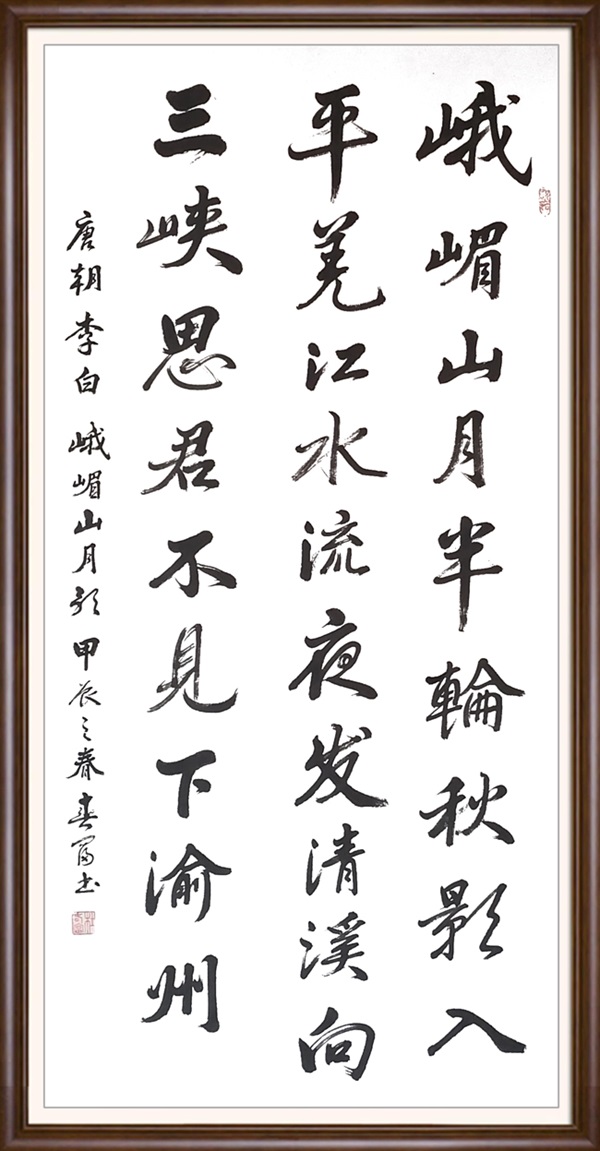 峨嵋山月半輪秋影入
平羌江水流夜发清溪向
三峡思君不見下渝州
唐朝李白峨嵋山月歌甲辰之春春富书